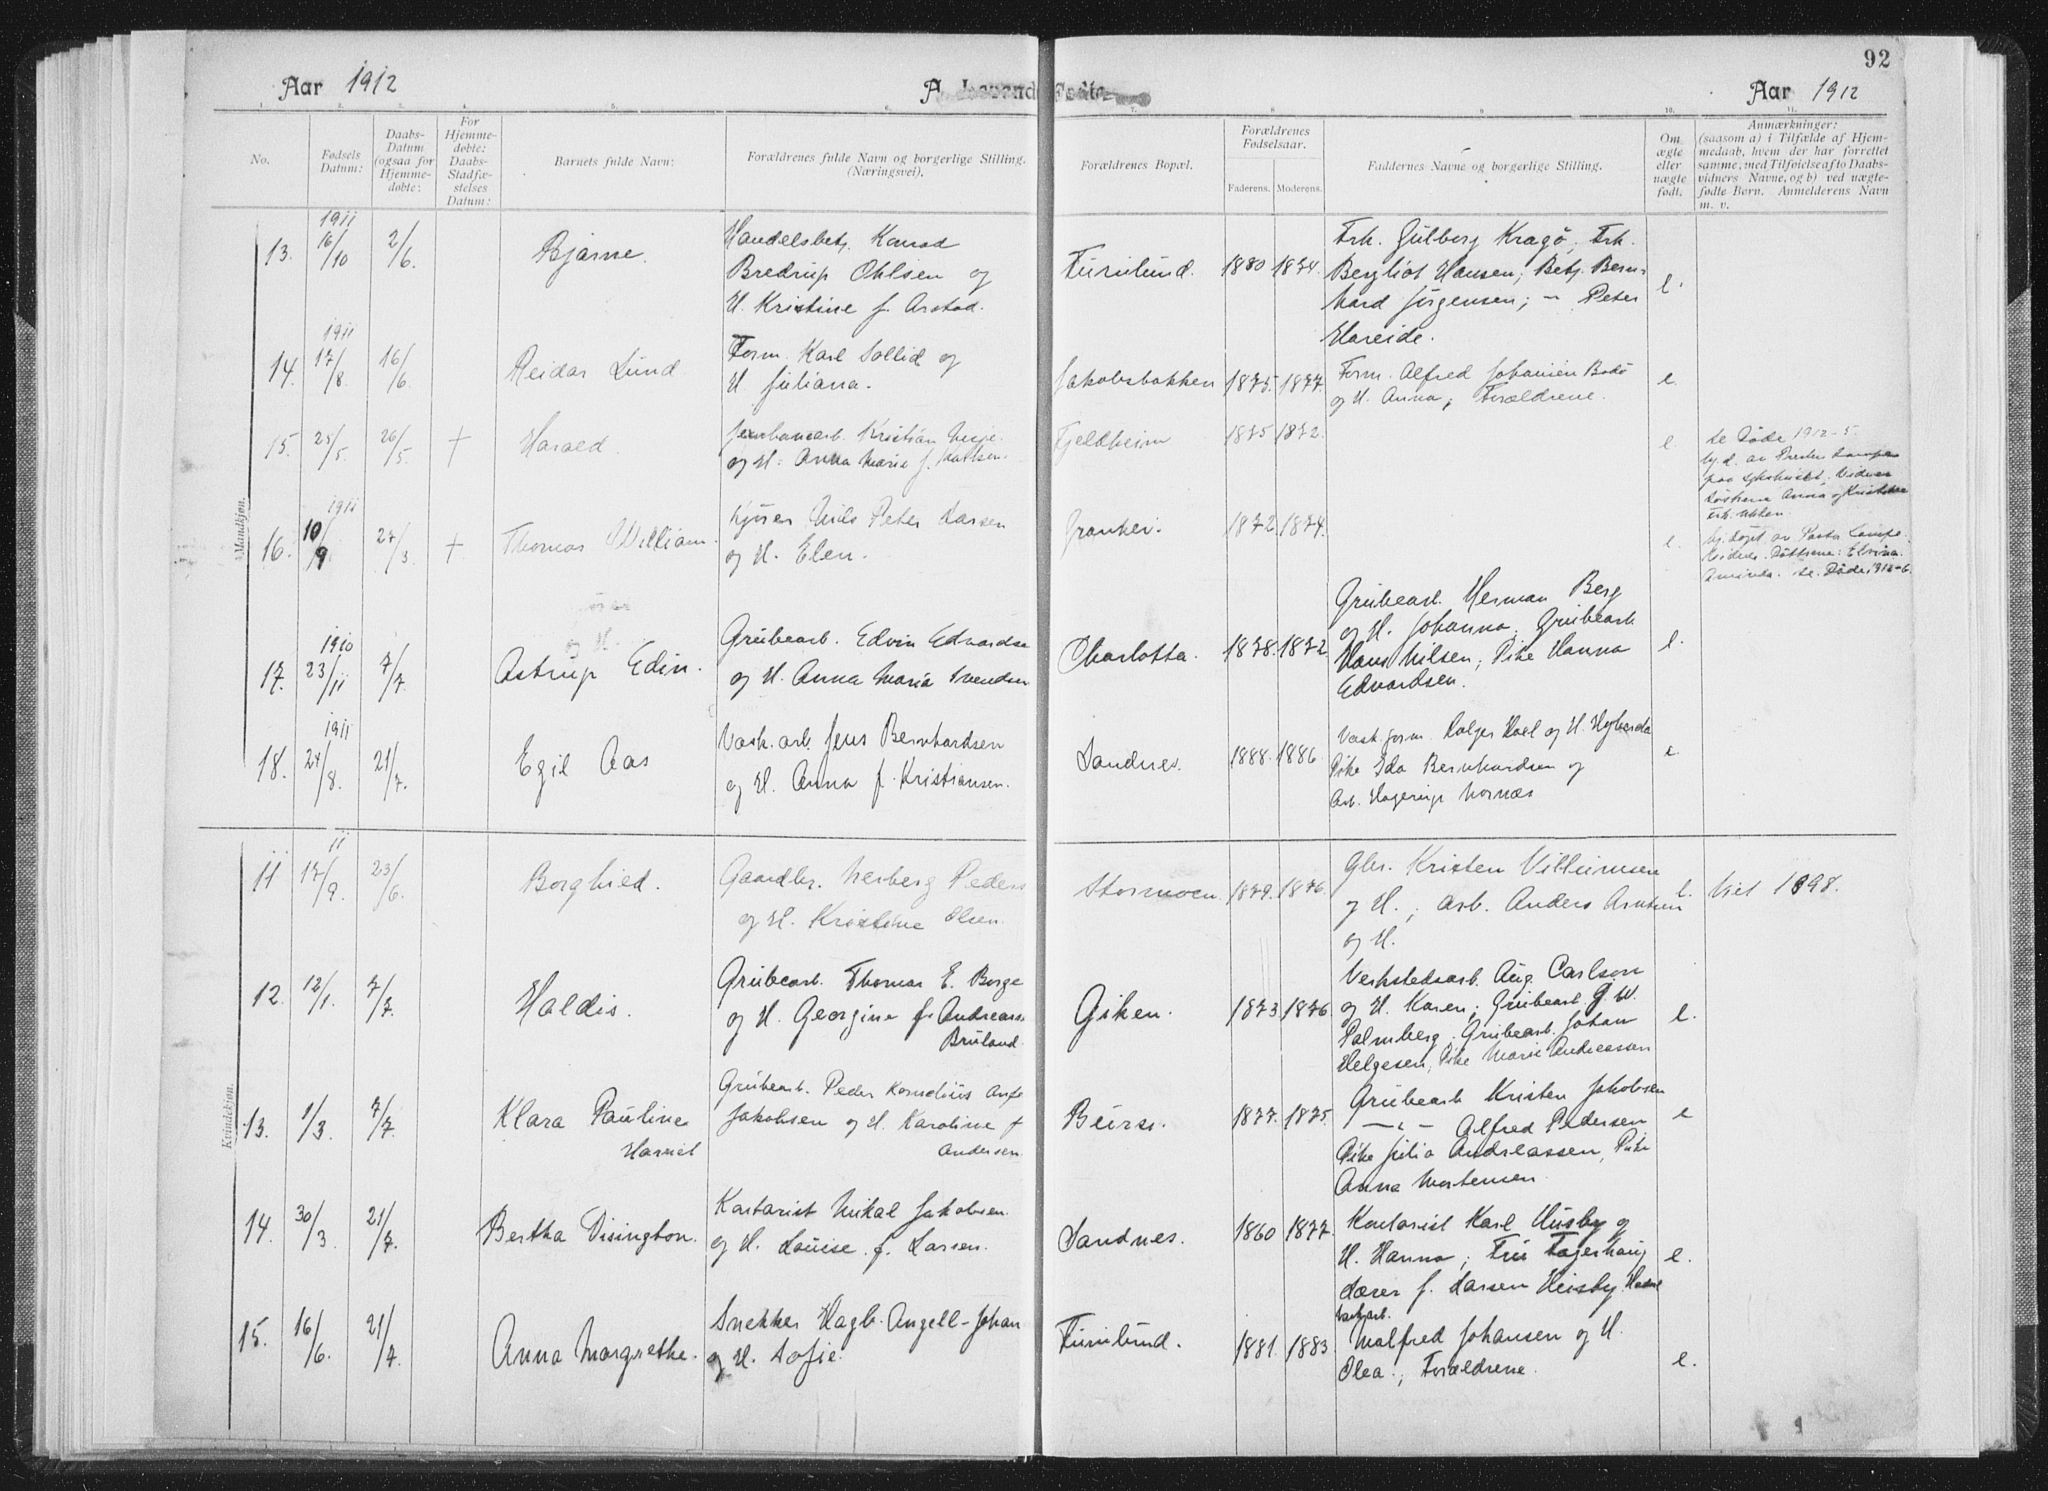 Aar 1912
A. Levende Fødte
92
Aar 1912
1. 2. 3. 4. 5. 6. 7. 8. 9. 10. 11.
No.
Fødsels Datum:
Daabs-Datum (ogsaa for Hjemme-døbte:
For Hjemme-døbte: Daabs-Stadfæ-stelses Datum:
Barnets fulde Navn:
Forældrenes fulde Navn og borgerlige Stilling. (Næringsvei).
Forældrenes Bopæl.
Forældrenes Fødselsaar.
Faderens. Moderens.
Faddernes Navne og borgerlige Stilling.
Om ægte eller uægte født.
Anmærkninger:
(saasom a) i Tilfælde af Hjem-
medaab, hvem der har forrettet
samme, med Tilføielse af to Daabs-
vidners Navne, og b) ved uægte-
fødte Børn. Anmelderens Navn
m. v.
Mandkjøn.
13. 1911 16/10 2/6. Bjarne. Handelsbetj. Konrad
Bredrup Ohlsen og
H. Kristine f. Arstad.
Furulund. 1880 1874.
Frk. Gulborg Kragø; Frk.
Bergliot Hansen; Betj. Bern-
hard Jørgensen; — Peter
Hareide.
e.
14. 1911 17/8. 16/6. Reidar Lund Form. Karl Sollid og
H. Juliana.
Jakobsbakken 1875. 1877.
Form. Alfred Johansen Bodø
og H. Anna; Forældrene.
e.
15. 25/5 26/5. + Harald. Jernbanearb. Kristian
og H. Anna Marie f.
Fjeldheim 1875 1872. e.
se Døde 1912-5.
16. 1911 10/9 27/3 + Thomas William. Kjører Nils Peter Larsen
og H. Elen.
Granhei. 1872. 1874. e.
se Døde 1912-6.
17. 1910 23/11 7/7 Astrup Edin. Grubearb. Edvin Edvardse
og H. Anna Maria Svendsen
Charlotta. 1878. 1872.
Grubearb. Herman Berg
og H. Johanna; Grubearb.
Hans Nilsen; Pike Hanna
Edvardsen.
e.
18. 1911 24/8. 21/7. Egil Aas Vask. arb. Jens Bernhardsen
og H. Anna f. Kristiansen.
Sandnes. 1888. 1886.
Vask. form. Holger Hoel og H.
Pike Ida Bernhardsen og
Arb. Hagerup Nornæs
e.
Kvindekjøn.
11 11 17/9. 23/6. Borghild. Gaardbr. Nerberg Peders
og H. Kristine Olsen.
Stormoen. 1879. 1876.
Gbr. Kristen Villumsen
og H.; arb. Anders Arntsen
og H.
e. 1898.
12. 12/1. 7/7. Haldis. Grubearb. Thomas E. Borge
og H. Georgine f. Andreass
Bruland
Giken. 1873 1876
Verkstedsarb. Aug. Carlson
og H. Karen; Grubearb. G. W.
Palmberg. Grubearb. Johan
Helgesen, Pike Marie Andreassen
e.
13. 1/3. 7/7. Klara Pauline
Harriet
Grubearb. Peder Kornelius
Jakobsen og H. Karoline f
Andersen.
Bursi. 1877. 1875.
Grubearb. Kristen Jakobsen
— " — Alfred Pedersen
Pike Julia Andreassen, Pike
Anna Mortensen.
e
14. 30/3. 21/7. Bertha Disington. Kontorist Mikal Jakobsen
og H. Louise f. Larsen.
Sandnes. 1860 1877.
Kontorist Karl Husby og
H. Hanna; Fru Fagerhaug
Lærer f. Larsen Husby
e.
15. 16/6. 21/7. Anna Margrethe. Snekker Hagb. Angell-Johan
og H. Sofie.
Furulund. 1881. 1883
Vaskarb.
Malfred Johansen og H.
Olea.; Forældrene.
e.